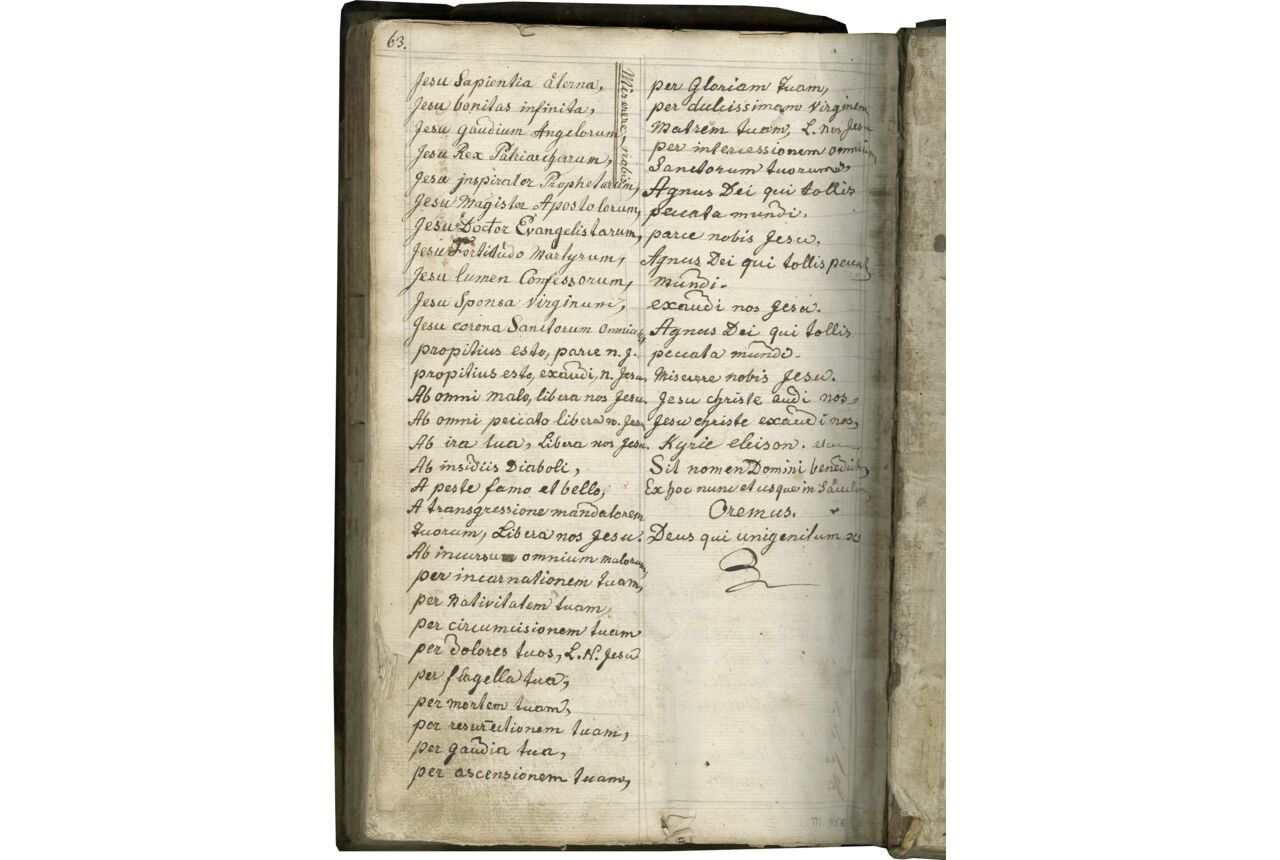 63.
Jesu Sapientia æterna,
Jesu bonitas infinita,
Jesu gaudium Angelorum,
Jesu Rex Patriarcharum,
Jesu jnspirator Prophetarum,
Jesu Magister Apostolorum,
Jesu Doctor Evangelistarum,
Jesu Fortitudo Martyrum,
Jesu lumen Confessorum,
Jesu Sponsa Virginum,
Jesu corona Sanctorum omnium,
propitius esto, parce n. J.
propitius esto, exaudi, n. Jesu
Ab omni malo, libera nos Jesu.
Ab omni peccato libera n. Jesu
Ab ira tua, Libera nos Jesu.
Ab insidiis Diaboli,
A peste famo et bello,
A transgressione mandatorem
Tuorum, Libera nos Jesu.
Ab incursum omnium malorum,
per incarnationem tuam,
per Nativitatem tuam,
per circumcisionem tuam
per dolores tuos, L. N. Jesu
per flagella tua,
per mortem tuam,
per resurectionem tuam,
per gaudia tua,
per ascensionem tuam,
Miserere nobis
per Gloriam tuam,
per dulcissimam Virginem
Matrem tuam, L. nos Jesu
per intercessionem omnium
Sanctorum tuorum,
Agnus Dei qui tollis
peccata mundi.
parce nobis Jesu.
Agnus Dei qui tollis peccata
mundi.
exaudi nos Jesu.
Agnus Dei qui tollis
peccata mundi.
Miserere nobis Jesu.
Jesu christe audi nos,
Jesu christe exaudi nos,
Kyrie eleison.
Sit nomen Domini benedictum,
Ex hoc nunc et usque in Sæculum
Oremus.
Deus qui unigenitum